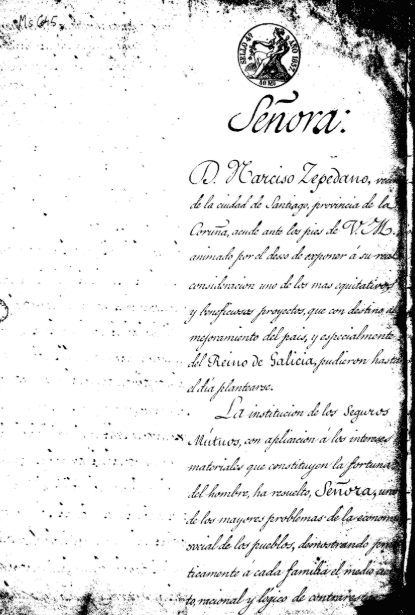 Ms 645
SELLO 4º AÑO 185
40 MS
Señora:
D. Narciso Zepedano, veci
de la ciudad de Santiago, provincia de la
Coruña, acude ante los pies de V. M.
animado por el deseo de exponer á su real
consideracion uno de los mas equitativos
y beneficiosos proyectos, que con destino al
mejoramiento del pais, y especialmente
del Reino de Galicia, pudieron hasta
el dia plantearse.
La institucion de los Seguros
Mútuos, con apliacion á los intereses
materiales que constituyen la fortuna
del hombre, ha resuelto, Señora, uno
de los mayores problemas de la economia
social de los pueblos, demostrando prác
ticamente á cada familia el medio
to, racional y lógico de contrarestar